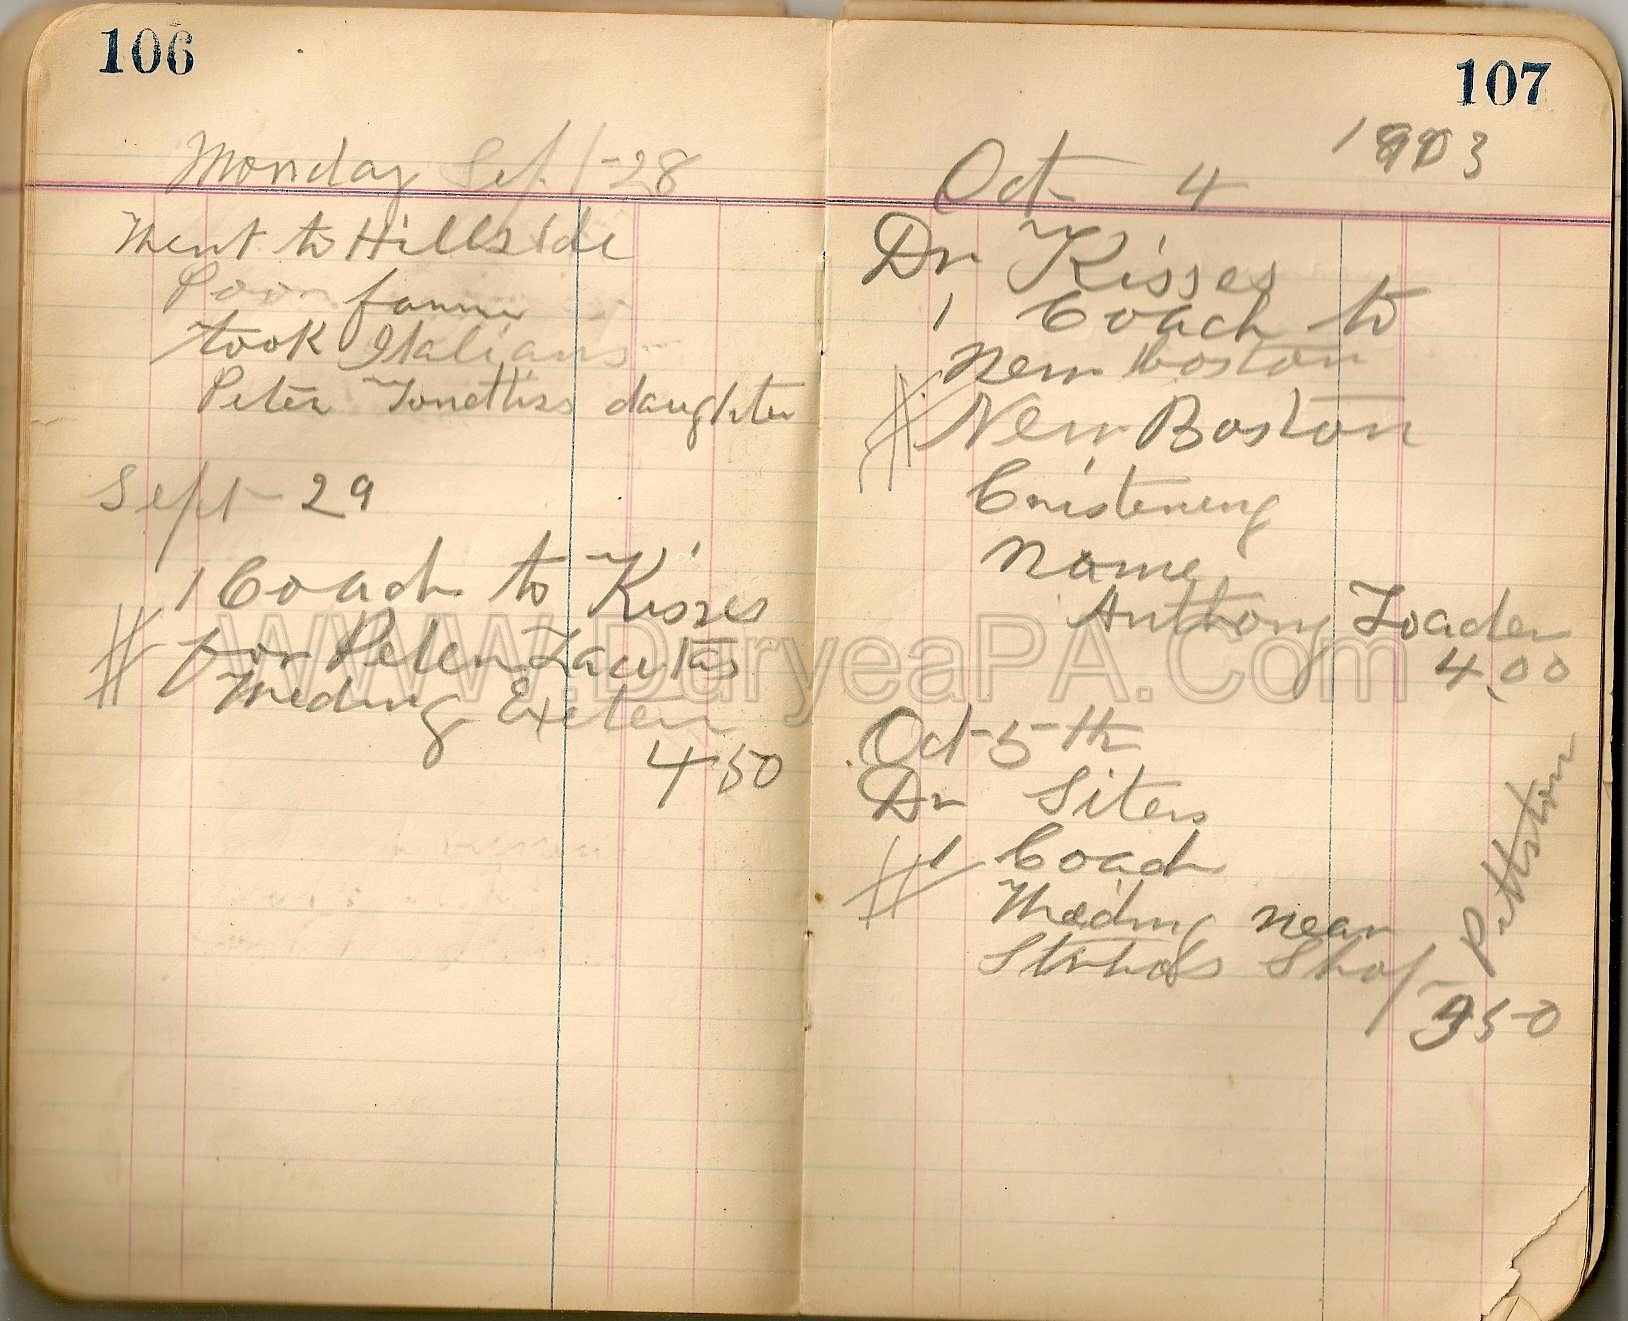 106
Monday Sept-28
Went to Hillside
Poor farm
took Italians
Peter daughter
Sept-29
1 Coach to Kisses
# for Peter
Weding Exeter
4 50
107
1903
Oct 4
Dr Kisses
1 Coach to
New Boston
# New Boston
Cristening
Name
Anthony Toader
4.00
Oct-5-th
Dr Siters
# 1 Coach
Weding near
Shop
Pittston
50
WWW.DuryeaPA.Com